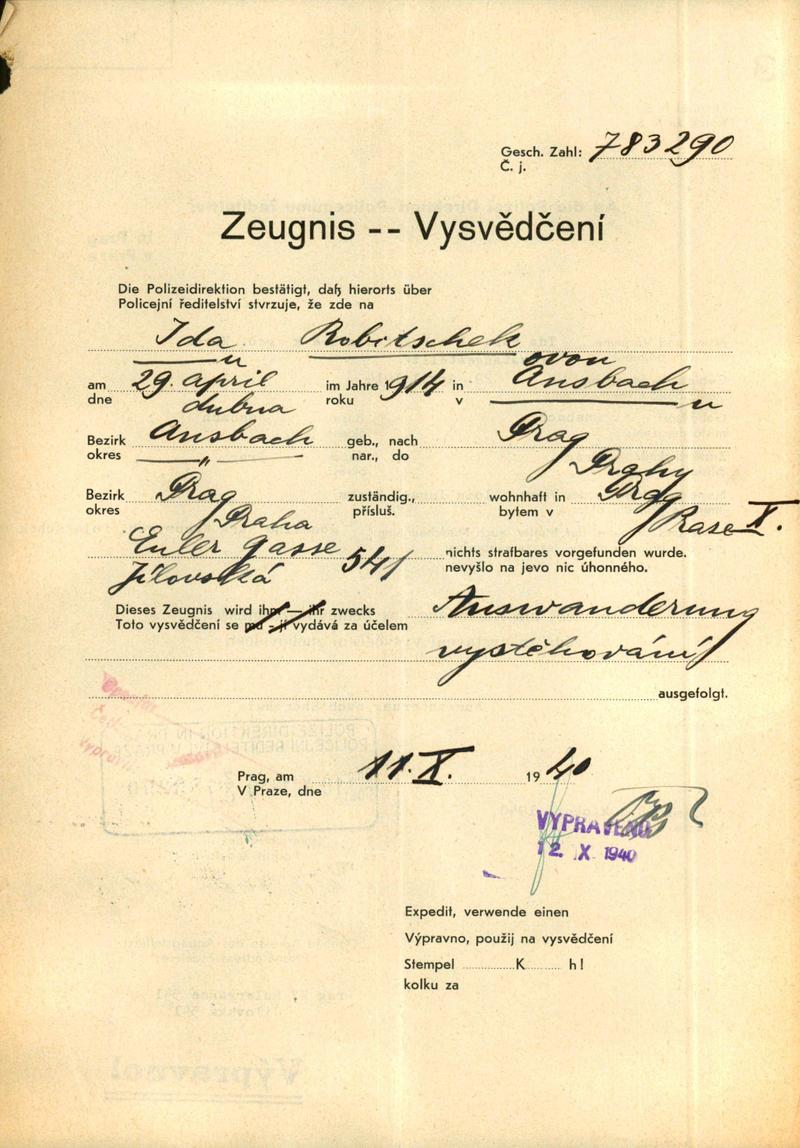 Gesch. Zahl: 783290
Č. j.
Zeugnis -- Vysvědčení
Die Polizeidirektion bestätigt, daß hierorts über
Policejní ředitelství stvrzuje, že zde na
Ida Robitschek
ovou
am 29. april im Jahre 1914 in Ansbach
dne dubna roku v u
Bezirk Ansbach geb., nach Prag
okres " nar., do Prahy
Bezirk Prag zuständig., wohnhaft in Prag
okres Praha přísluš. bytem v X.
Euler gasse 541 nichts strafbares vorgefunden wurde.
Jílovská nevyšlo na jevo nic úhonného.
Dieses Zeugnis wird ihm — ihr zwecks Auswanderung
Toto vysvědčení se mu - jí vydává za účelem
vystěhování
ausgefolgt.
Prag, am 11. X. 1940
V Praze, dne
VYPRAVENO
12. X. 1940
Expedit, verwende einen
Výpravno, použij na vysvědčení
Stempel K h!
kolku za